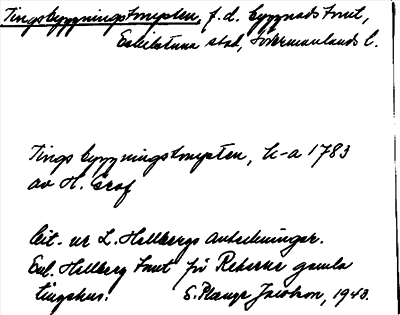 Tingsbyggningstomten, f.d. byggnadstomt,
Eskilstuna stad, Södermanlands l.
Tingsbyggningstomten, k-a 1783
av H. Graf
Cit. ur L. Hellbergs anteckningar.
Enl. Hellberg tomt för Rekarne gamla
tingshus. S. Plange Jacobson, 1943.